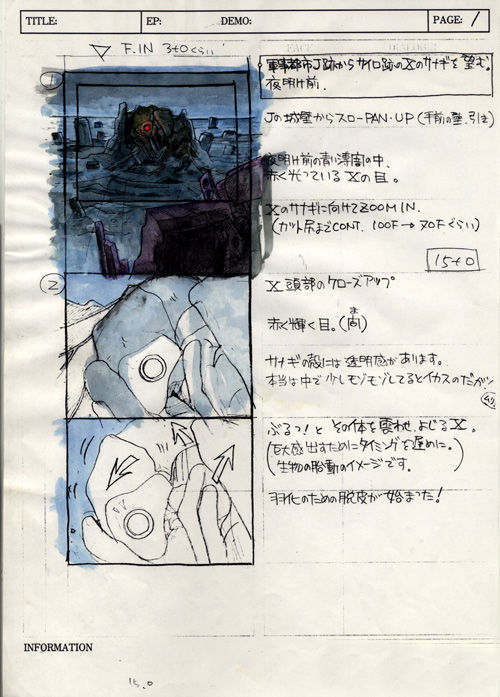 TITLE: EP: DEMO: PAGE: 1
F.IN 3+0くらい
FACT DIALOGUE
①
軍事都市J跡からサイロ跡のXのサナギを望む。
夜明け前.
Jの城壁からスローPAN・UP(手前の壁、引き)
夜明け前の青い薄闇の中、
赤く光っているXの目。
Xのサナギに向けてZOOM IN.
(カット尻までCONT. 100F→70Fぐらい)
15+0
②
X頭部のクローズアップ
赤く輝く目。(間)
ま
サナギの殻には透明感があります。
本当は中で少しモゾモゾしてるとイカスのだが…
ぶるっ!とその体を震わせ、よじるX。
(巨大感出すためにタイミングを遅めに。
生物の胎動のイメージです。)
羽化のための脱皮が始まった!
INFORMATION
15.0